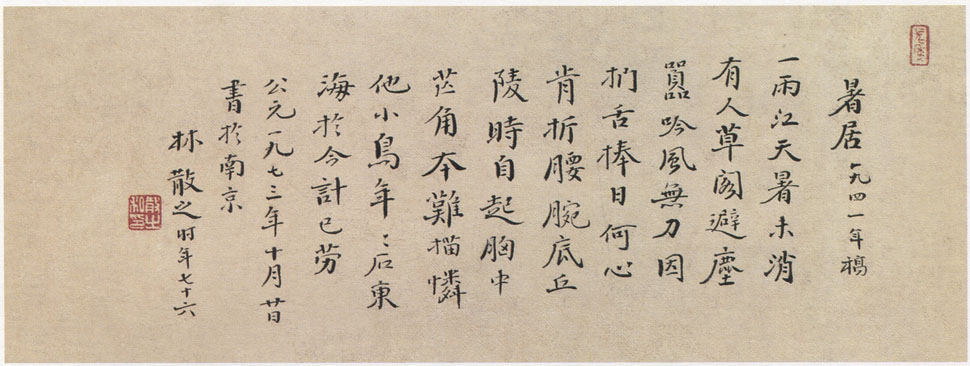 暑居 一九四一年稿
一雨江天暑未消
有人草閣避塵
囂吟風無力因
捫舌捧日何心
肯折腰腕底丘
陵時自起胸中
芒角本難描憐
他小鳥年〻石東
海於今計已勞
公元一九七三年十月昔
書於南京
林散之时年七十六